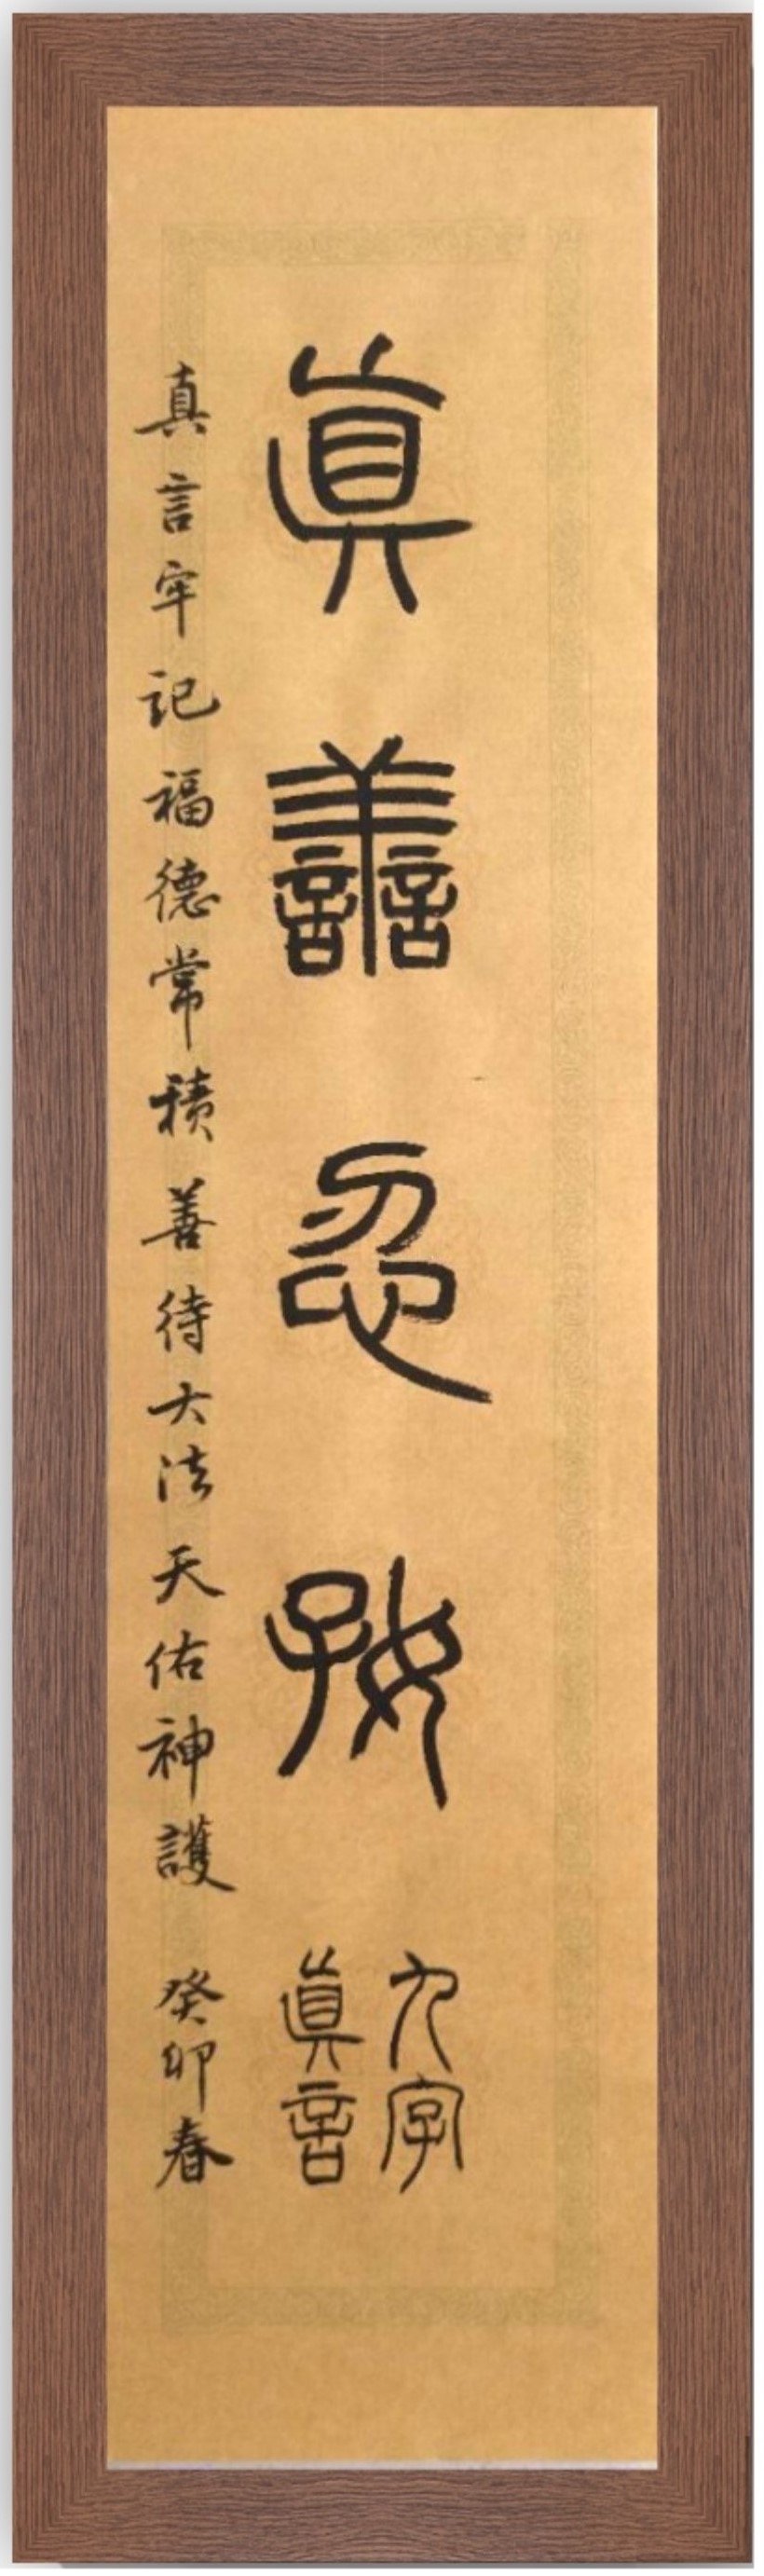 眞善忍好
九字
眞言
真言牢记福德常積善待大法天佑神護 癸卯春